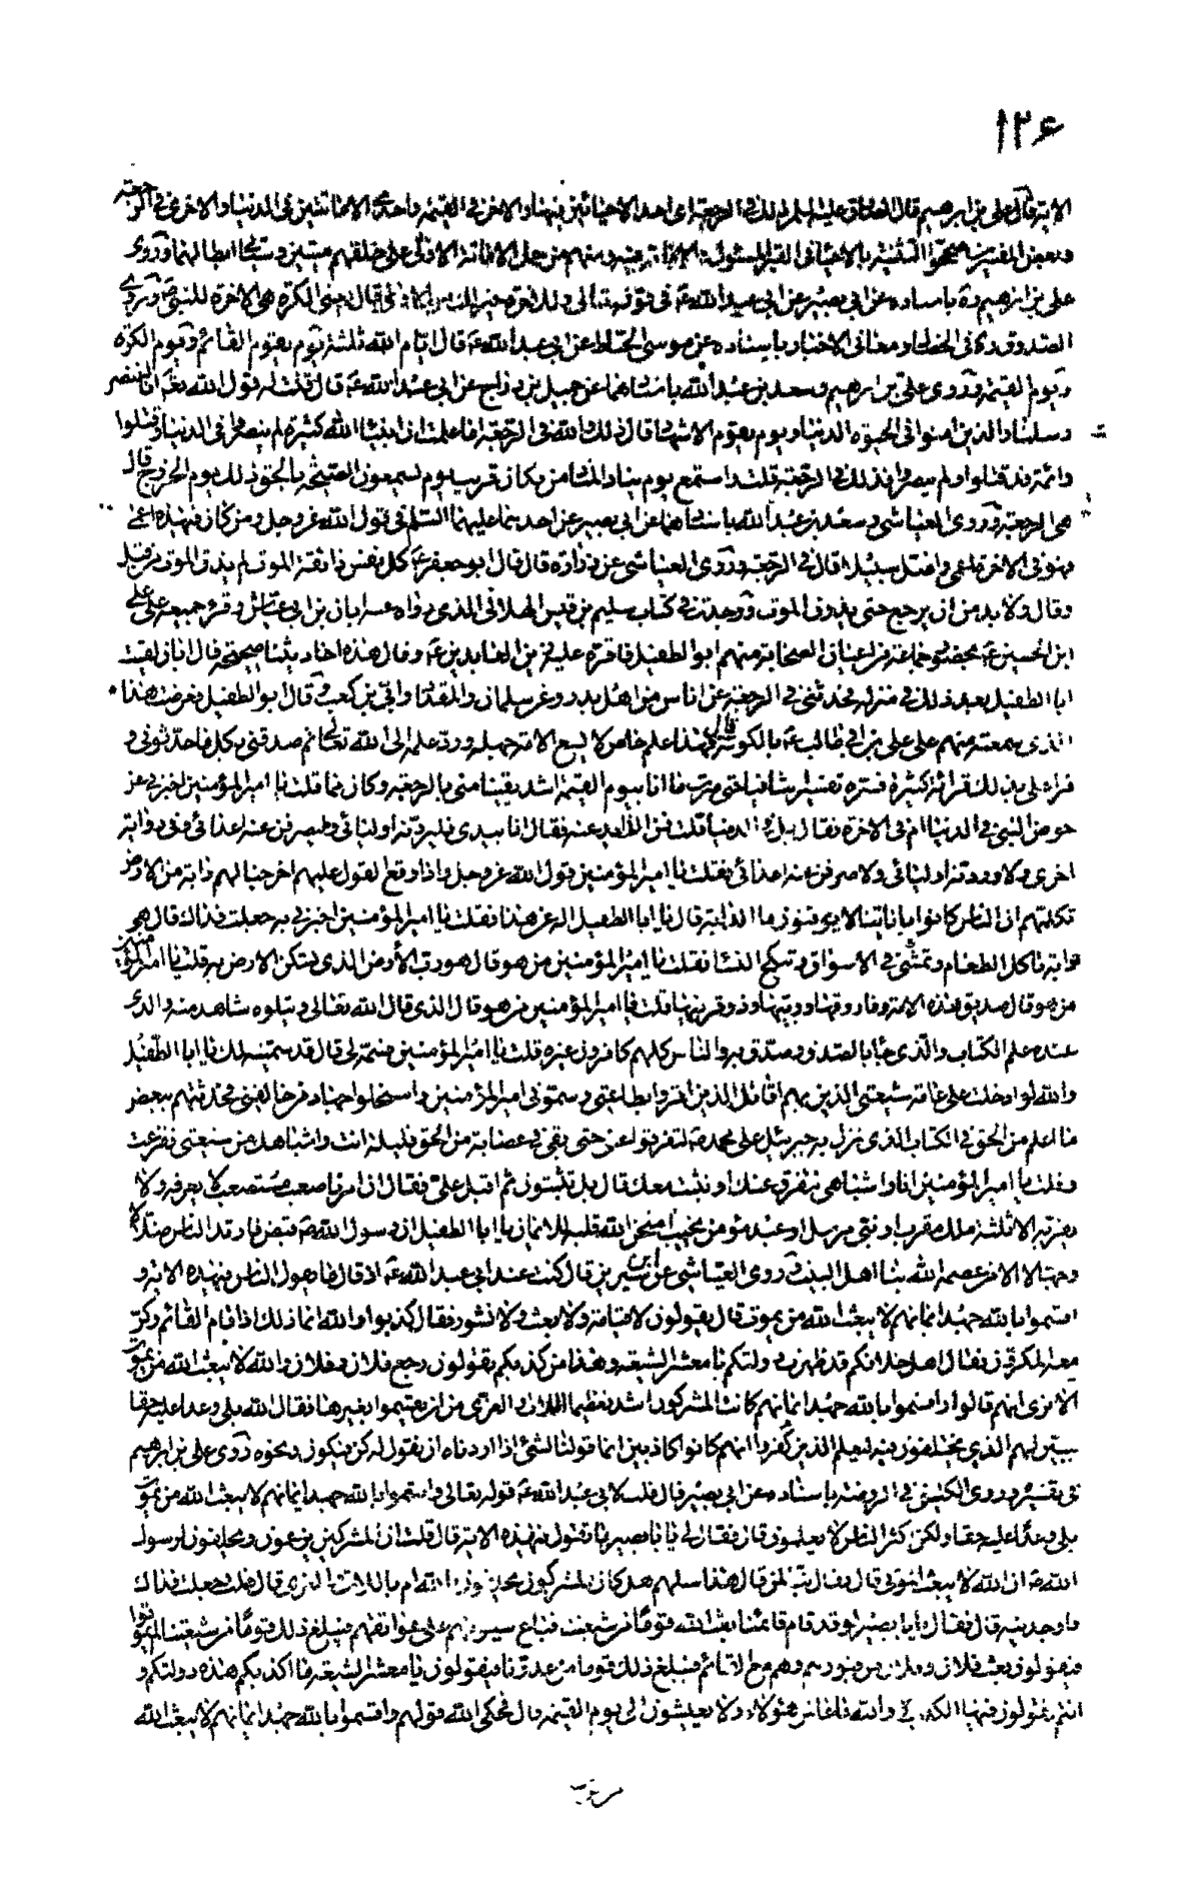 ١٢۶
الاية قال علي بن ابرهيم قال الصادق عليه السلم ذلك في الرجعة اي احد الاحيائين فيها والاخر في القيمة واحدى الاماتتين في الدنيا والاخرى في الرجعة
وبعض المفسرين صححوا التثنية بالاحياء في القبر للسؤال والاماتة فيه ومنهم من حمل الاماتة الاولى على خلقهم ميتين
علي بن ابرهيم ره باسناده عن ابي بصير عن ابي عبد الله ع في قوله تعالى وللاخرة خير لك من الاولى قال يعني الكرة هي الاخرة للنبي ص وروى
الصدوق ره في الخصال ومعاني الاخبار باسناده عن موسى الحناط عن ابي عبد الله ع قال ايام الله ثلثة يوم يقوم القائم ويوم الكرة
ويوم القيمة وروى علي بن ابرهيم وسعد بن عبد الله باسنادهما عن جميل بن دراج عن ابي عبد الله ع قال قلت له قول الله تعالى انا لننصر
رسلنا والذين امنوا في الحيوة الدنيا ويوم يقوم الاشهاد قال ذلك والله في الرجعة اما علمت ان انبياء الله كثيرة لم ينصروا في الدنيا وقتلوا
وائمة قد قتلوا ولم ينصروا فذلك في الرجعة قلت واستمع يوم يناد المناد من مكان قريب يوم يسمعون الصيحة بالحق ذلك يوم الخروج قال
هي الرجعة وروى العياشي وسعد بن عبد الله باسنادهما عن ابي بصير عن احدهما عليهما السلم في قول الله عز وجل ومن كان في هذه اعمى
فهو في الاخرة اعمى واضل سبيلا قال في الرجعة وروى العياشي عن زرارة قال قال ابو جعفر ع كل نفس ذائقة الموت لم يذق الموت من قتل
وقال لا بد من ان يرجع حتى يذوق الموت ووجدت في كتاب سليم بن قيس الهلالي الذي رواه عنه ابان بن ابي عياش وقرء جميعه على علي
ابن الحسين ع بحضور جماعة من اعيان الصحابة منهم ابو الطفيل فاقره عليه زين العابدين ع وقال هذه احاديثنا صحيحة قال ابان لقيت
ابا الطفيل بعد ذلك في منزله فحدثني في الرجعة عن اناس من اهل بدر وعن سلمان والمقداد وابي بن كعب وقال ابو الطفيل فعرضت هذا
الذي سمعته منهم على علي بن ابي طالب ع بالكوفة فقال هذا علم خاص لا يسع الامة جهله ورد علمه الى الله تعالى ثم صدقني بكل ما حدثوني و
قراء علي بذلك قرائة كثيرة فسره تفسيرا شافيا حتى صرت ما انا بيوم القيمة اشد يقينا مني بالرجعة وكان مما قلت يا امير المؤمنين اخبرني عن
حوض النبي في الدنيا ام في الاخرة فقال بل في الدنيا قلت فمن الذائد عنه فقال انا بيدي فليردنه اوليائي وليصرفن عنه اعدائي وفي رواية
اخرى ولاوردنه اوليائي ولاصرفن عنه اعدائي فقلت يا امير المؤمنين قول الله عز وجل واذا وقع القول عليهم اخرجنا لهم دابة من الارض
تكلمهم ان الناس كانوا باياتنا لا يوقنون ما الدابة قال يا ابا الطفيل اله عن هذا فقلت يا امير المؤمنين اخبرني به جعلت فداك قال هي
دابة تاكل الطعام وتمشي في الاسواق وتنكح النساء فقلت يا امير المؤمنين من هو قال هو رب الارض الذي تسكن الارض به قلت يا امير المؤمنين
من هو قال صديق هذه الامة وفاروقها وربيها وذو قرنيها قلت يا امير المؤمنين من هو قال الذي قال الله تعالى ويتلوه شاهد منه والذي
عنده علم الكتاب والذي جاء بالصدق وصدق به والناس كلهم كافرون غيره قلت يا امير المؤمنين فسمه لي قال قد سميته لك يا ابا الطفيل
والله لو ادخلت على عامة شيعتي الذين بهم اقاتل الذين اقروا بطاعتي وسموني امير المؤمنين واستحلوا جهاد من خالفني فحدثتهم ببعض
ما اعلم من الحق في الكتاب الذي نزل به جبرئيل على محمد ص لتفرقوا عني حتى بقي في عصابة من الحق قليلة انت واشباهك من شيعتي ففزعت
وقلت يا امير المؤمنين انا واشباهي نتفرق عنك او نثبت معك قال بل تثبتون ثم اقبل علي فقال ان امرنا صعب مستصعب لا يعرفه ولا
يقر به الا ثلثة ملك مقرب او نبي مرسل او عبد مؤمن نجيب امتحن الله قلبه للايمان يا ابا الطفيل ان رسول الله ص قبض فارتد الناس ضلالا
وجهالا الا من عصمه الله بنا اهل البيت وروى العياشي عن سيرين قال كنت عند ابي عبد الله ع اذ قال ما يقول الناس في هذه الاية و
اقسموا بالله جهد ايمانهم لا يبعث الله من يموت قال يقولون لا قيامة ولا بعث ولا نشور فقال كذبوا والله انما ذلك اذا قام القائم وكر
معه المكرون فقال اهل خلافكم قد ظهرت دولتكم يا معشر الشيعة وهذا من كذبكم يقولون رجع فلان وفلان لا والله لا يبعث الله من يموت
الا ترى انهم قالوا واقسموا بالله جهد ايمانهم كانت المشركون اشد تعظيما اللات والعزى من ان يقسموا بغيرها فقال الله بلى وعدا عليه حقا
ليبين لهم الذي يختلفون فيه وليعلم الذين كفروا انهم كانوا كاذبين انما قولنا لشئ اذا اردناه ان نقول له كن فيكون ونحوه روى علي بن ابرهيم
في تفسيره وروى الكليني في الروضة باسناده عن ابي بصير قال قلت لابي عبد الله ع قوله تعالى واقسموا بالله جهد ايمانهم لا يبعث الله من يموت
بلى وعدا عليه حقا ولكن اكثر الناس لا يعلمون قال فقال لي يا ابا بصير ما تقول في هذه الاية قال قلت ان المشركين يزعمون ويحلفون لرسول
الله ص ان الله لا يبعث الموتى قال فقال تبا لمن قال هذا سلهم هل كان المشركون يحلفون بالله ام باللات والعزى قال قلت جعلت فداك
فاوجدنيه قال فقال يا ابا بصير لو قد قام قائمنا بعث الله قوما من شيعتنا قباع سيوفهم على عواتقهم فيبلغ ذلك قوما من شيعتنا لم يموتوا
فيقولون بعث فلان وفلان من قبورهم وهم مع القائم فيبلغ ذلك قوما من عدونا فيقولون يا معشر الشيعة ما اكذبكم هذه دولتكم و
انتم تقولون فيها الكذب لا والله ما عاش هؤلاء ولا يعيشون الى يوم القيمة قال فحكى الله قولهم واقسموا بالله جهد ايمانهم لا يبعث الله
من يموت